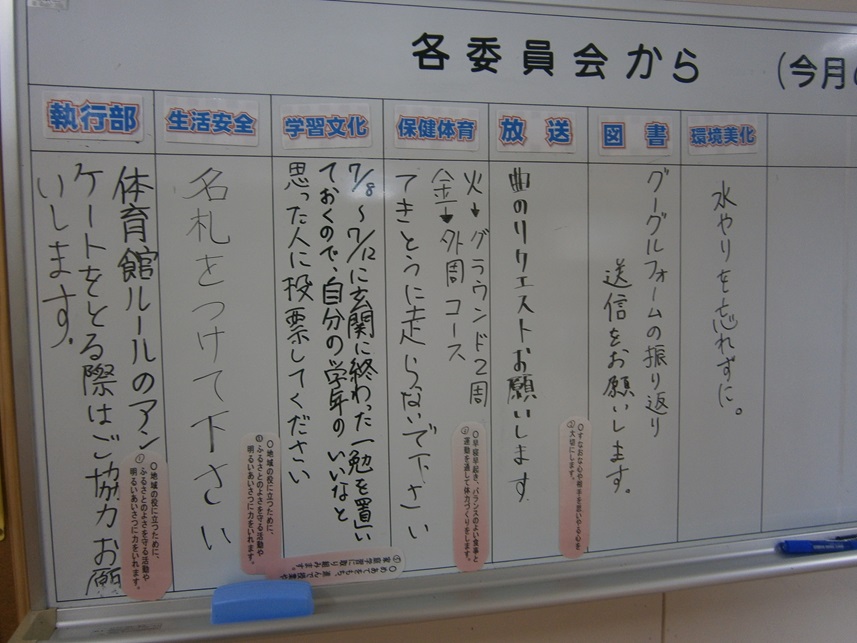 各委員会から
(今月の
執行部
体育館ルールのアン
ケートをとる際はご協力お願
いします。
生活安全
名札をつけて下さい
学習文化
7/8～7/12に玄関に終わった一勉を置い
ておくので、自分の学年のいいなと
思った人に投票してください
保健体育
火→グラウンド2周
金→外周コース
てきとうに走らないで下さい
放送
曲のリクエストお願いします
図書
グーグルフォームの振り返り
送信をお願いします。
環境美化
水やりを忘れずに。
⑥
○地域の役に立つために、
ふるさとのよさを守る活動や
明るいあいさつに力をいれます。
⑥
○地域の役に立つために、
ふるさとのよさを守る活動や
明るいあいさつに力をいれます。
①
○めあてをもち、進んで授業や
家庭学習に取り組みます。
○早寝早起き、バランスのよい食事と
運動を通して体力づくりをします。
○すなおな心や相手を思いやる心を
大切にします。